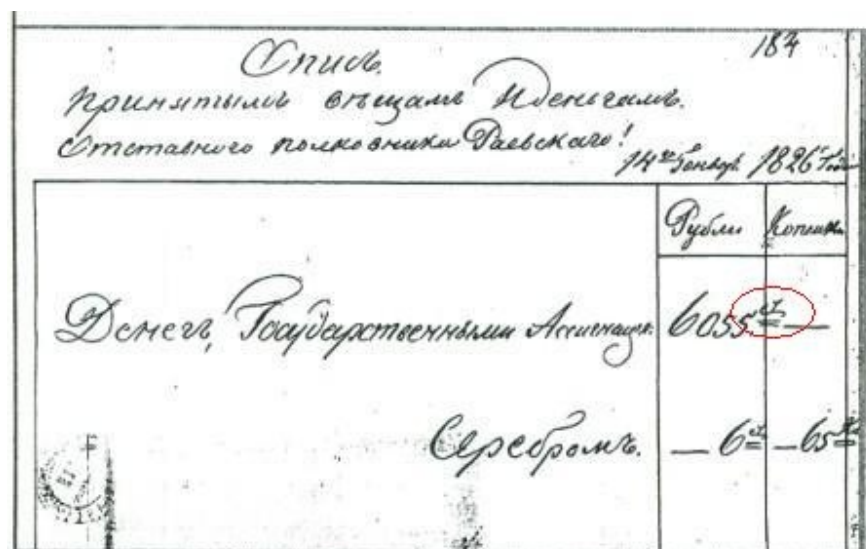 187
Опись
принятымъ вещамъ И деньгамъ.
Отставного полковника Раевскаго!
14го Генвар. 1826 Года
Рубли Копейки
Денегъ, Государственными Ассигнация. 6055 —
Серебромъ. — 6 — 65